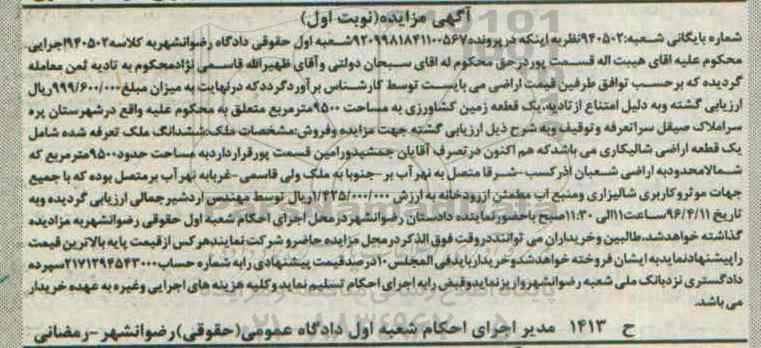 آگهی مزایده(نوبت اول)
شماره بایگانی شعبه:۹۴۰۵۰۲نظربه اینکه درپرونده۹۲۰۹۹۸۱۸۴۱۱۰۰۵۶۷شعبه اول حقوقی دادگاه رضوانشهربه کلاسه۹۴۰۵۰۲اجرایی
محکوم علیه اقای هیبت اله قسمت پوردرحق محکوم له اقای سبحان دولتی وآقای ظهیرالله قاسمی نژادمحکوم به تادیه ثمن معامله
گردیده که برحسب توافق طرفین قیمت اراضی می بایست توسط کارشناس برآوردگرددکه درنهایت به میزان مبلغ۹۹۹/۶۰۰/۰۰۰ریال
ارزیابی گشته وبه دلیل امتناع ازتادیه،یک قطعه زمین کشاورزی به مساحت ۹۵۰۰مترمربع متعلق به محکوم علیه واقع درشهرستان پره
سراملاک صیقل سراتعرفه وتوقیف وبه شرح ذیل ارزیابی گشته جهت مزایده وفروش:مشخصات ملک:ششدانگ ملک تعرفه شده شامل
یک قطعه اراضی شالیکاری می باشدکه هم اکنون درتصرف آقایان جمشیدورامین قسمت پورقرارداردبه مساحت حدود۹۵۰۰مترمربع که
شمالامحدودبه اراضی شعبان آذرکسب-شرقا متصل به نهرآب بر-جنوبا به ملک ولی قاسمی-غربابه نهرآب برمتصل بوده که با جمیع
جهات موثروکاربری شالیزاری ومنبع اب مطمئن ازرودخانه به ارزش ۱/۴۲۵/۰۰۰/۰۰۰ریال توسط مهندس اردشیرجمالی ارزیابی گردیده وبه
تاریخ ۹۶/۴/۱۱ساعت۱۱الی ۱۱:۳۰صبح باحضورنماینده دادستان رضوانشهردرمحل اجرای احکام شعبه اول حقوقی رضوانشهربه مزادیده
گذاشته خواهدشد.طالبین وخریداران می تواننددروقت فوق الذکردرمحل مزایده حاضرو شرکت نمایندهرکس ازقیمت پایه بالاترین قیمت
راپیشنهادنمایدبه ایشان فروخته خواهدشدوخریداربایدفی المجلس۱۰درصدقیمت پیشنهادی رابه شماره حساب۲۱۷۱۲۹۴۵۴۳۰۰۰سپرده
دادگستری نزدبانک ملی شعبه رضوانشهرواریزنمایدوقبض رابه اجرای احکام تسلیم نماید وکلیه هزینه های اجرایی وغیره به عهده خریدار
می باشد.
ح ۱۴۱۳ مدیر اجرای احکام شعبه اول دادگاه عمومی(حقوقی)رضوانشهر-رمضانی